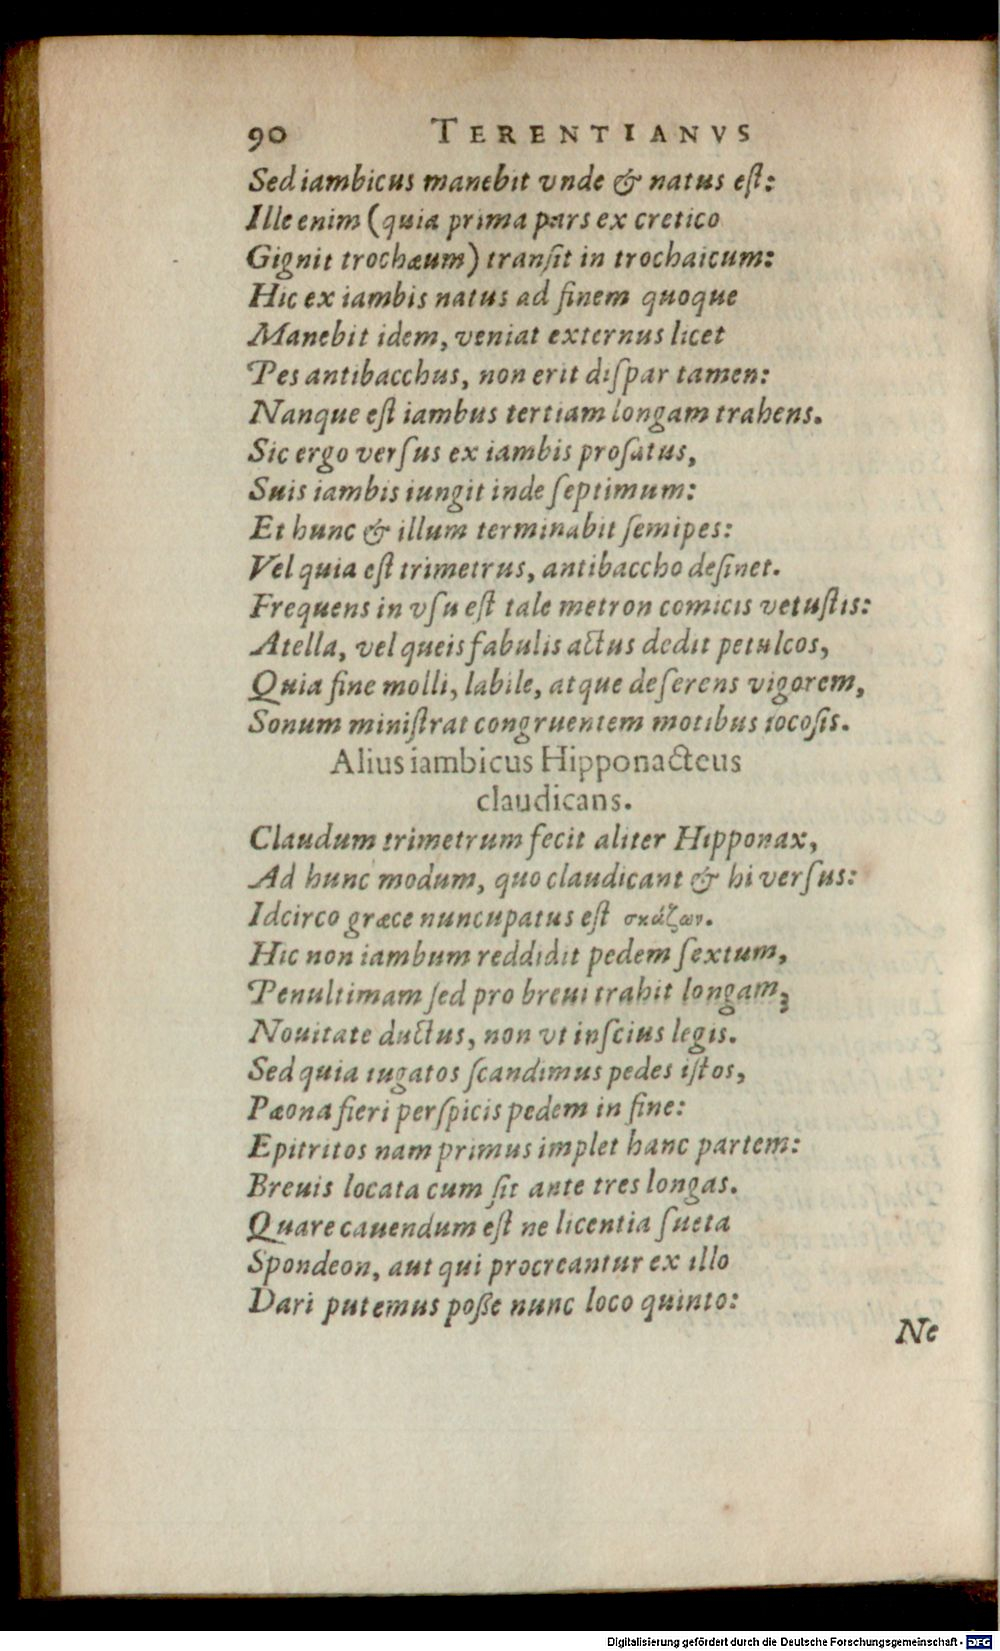 90 TERENTIANVS
Sed iambicus manebit vnde & natus eſt:
Ille enim (quia prima pars ex cretico
Gignit trochæum) tranſit in trochaicum:
Hic ex iambis natus ad finem quoque
Manebit idem, veniat externus licet
Pes antibacchus, non erit diſpar tamen:
Nanque eſt iambus tertiam longam trahens.
Sic ergo verſus ex iambis proſatus,
Suis iambis iungit inde ſeptimum:
Et hunc & illum terminabit ſemipes:
Vel quia eſt trimetrus, antibaccho deſinet.
Frequens in vſu eſt tale metron comicis vetuſtis:
Atella, vel queis fabulis actus dedit petulcos,
Quia fine molli, labile, atque deſerens vigorem,
Sonum miniſtrat congruentem motibus iocoſis.
Alius iambicus Hipponacteus
claudicans.
Claudum trimetrum fecit aliter Hipponax,
Ad hunc modum, quo claudicant & hi verſus:
Idcirco græce nuncupatus eſt σκάζων.
Hic non iambum reddidit pedem ſextum,
Penultimam ſed pro breui trahit longam;
Nouitate ductus, non vt inſcius legis.
Sed quia iugatos ſcandimus pedes iſtos,
Pæona fieri perſpicis pedem in fine:
Epitritos nam primus implet hanc partem:
Breuis locata cum ſit ante tres longas.
Quare cauendum eſt ne licentia ſueta
Spondeon, aut qui procreantur ex illo
Dari putemus poſſe nunc loco quinto:
Ne
Digitalisierung gefördert durch die Deutsche Forschungsgemeinschaft - DFG